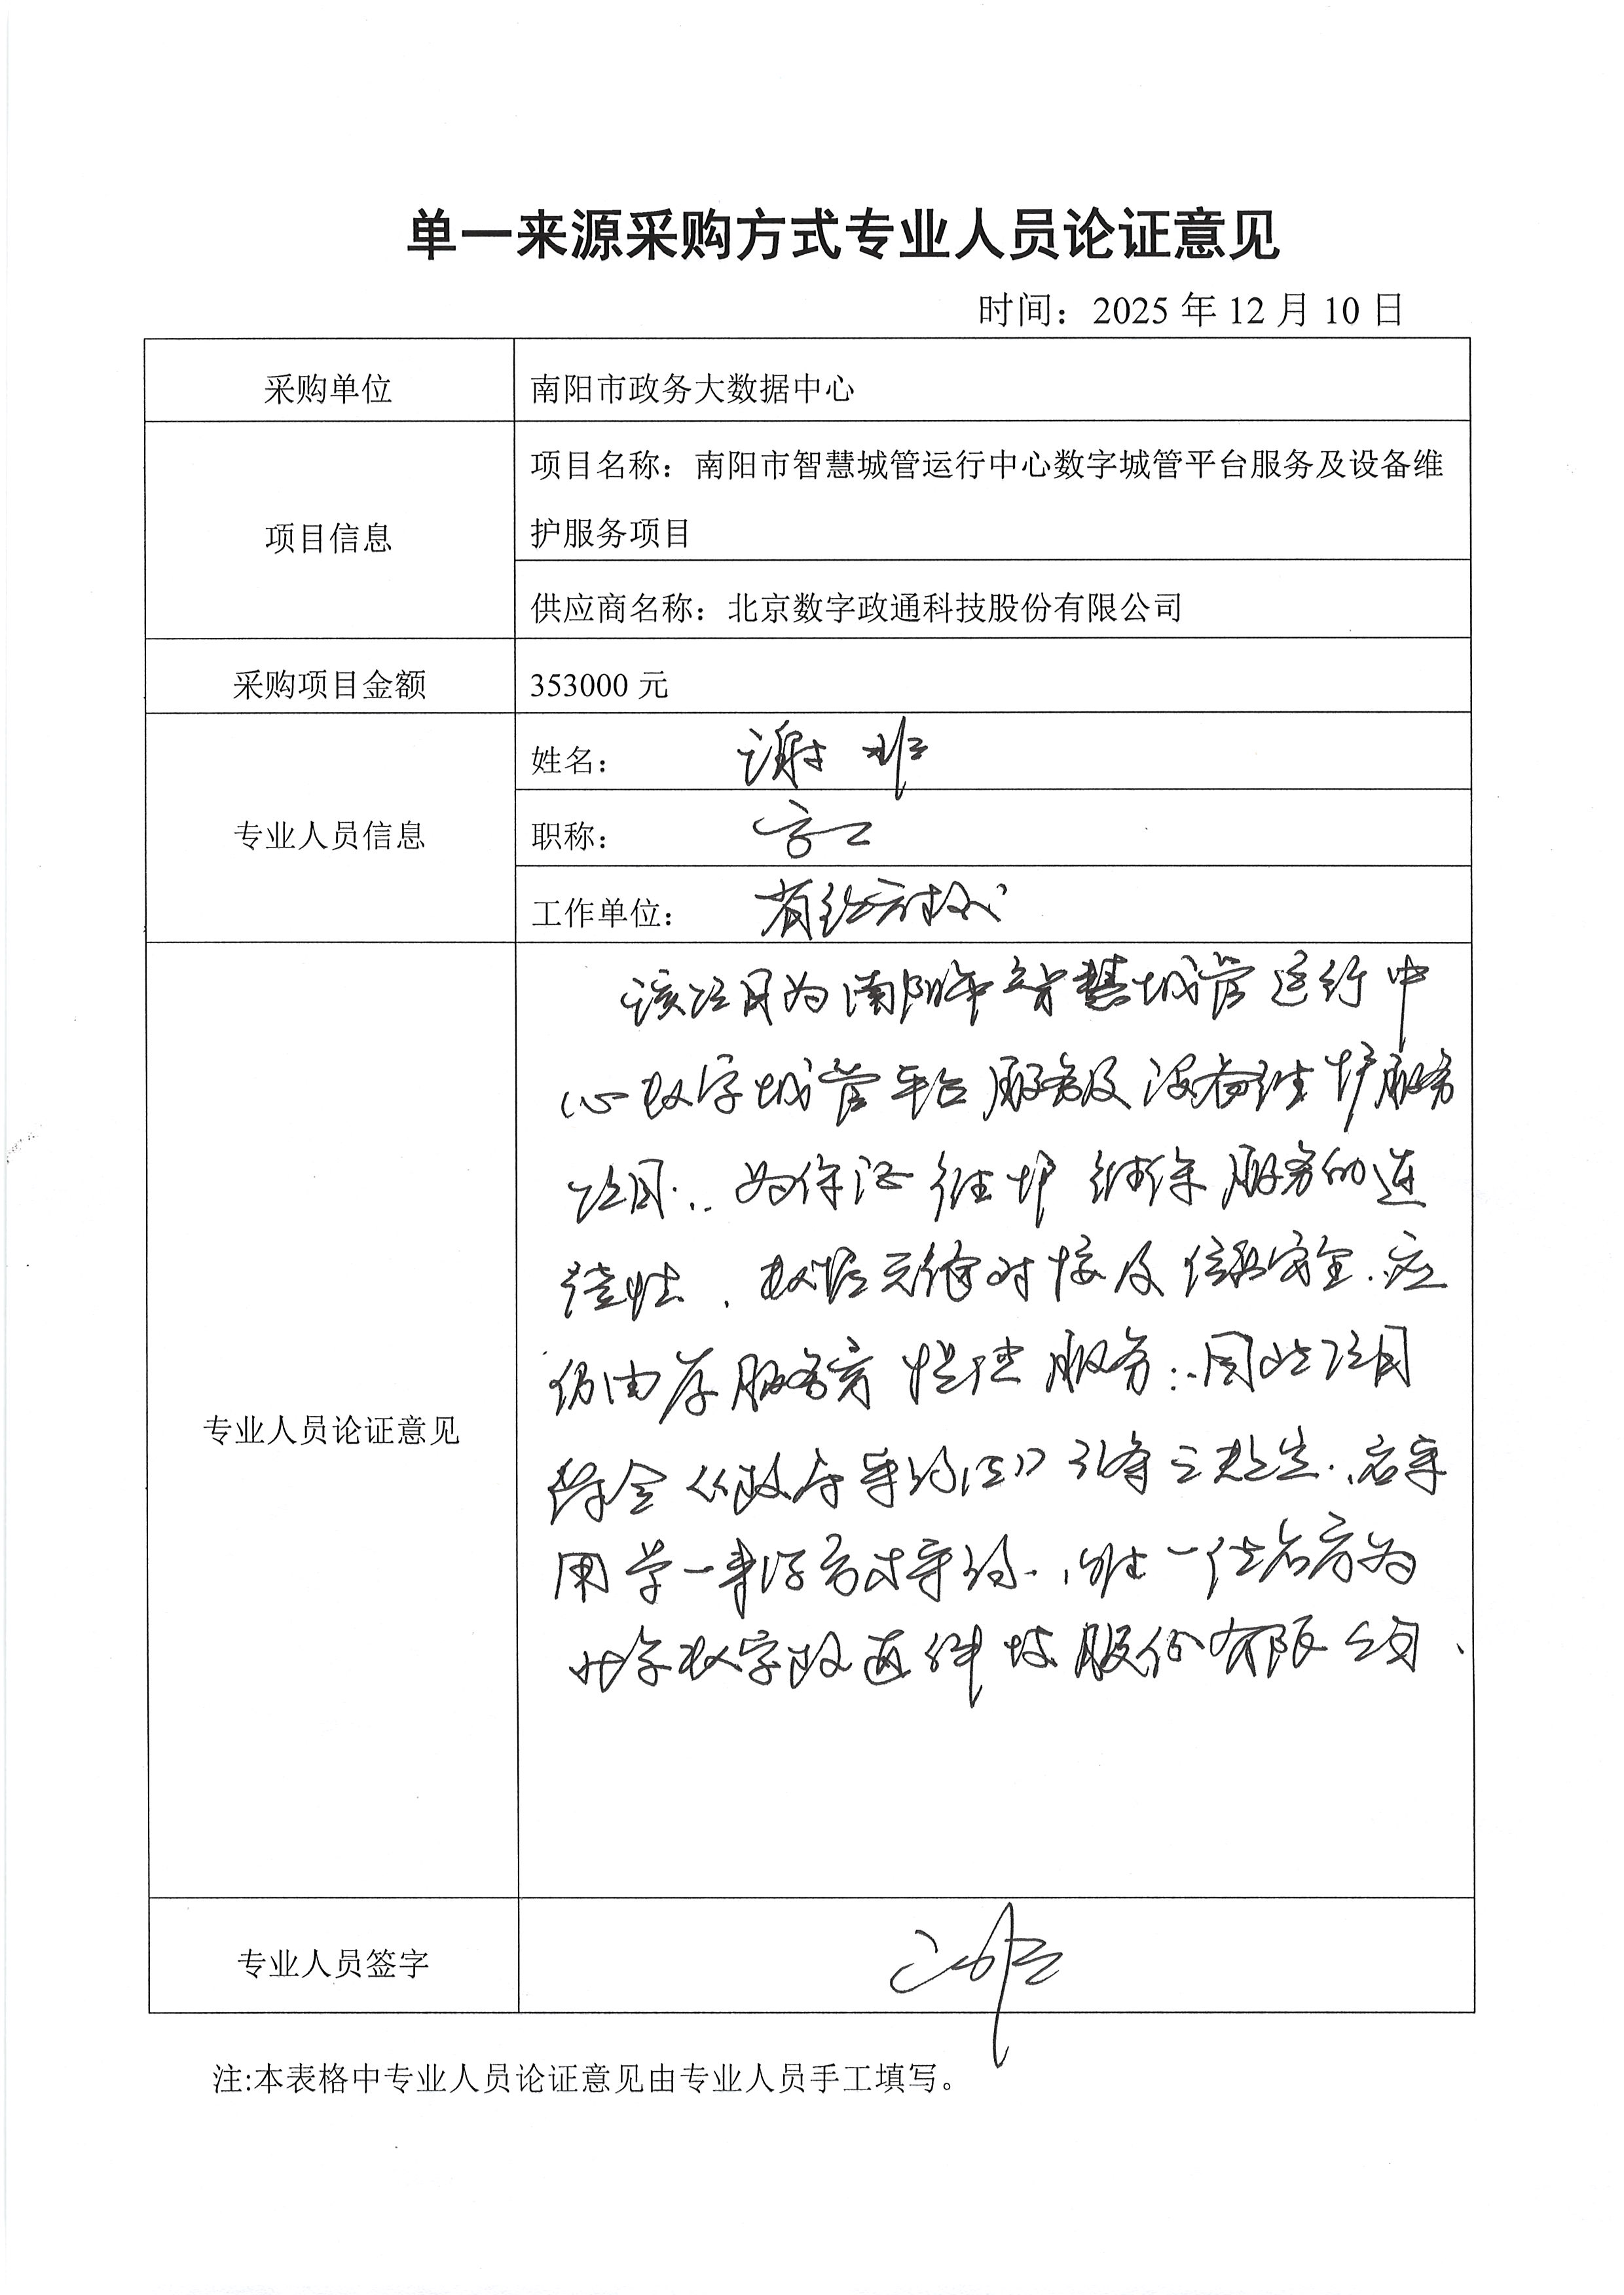 单一来源采购方式专业人员论证意见
时间：2025 年 12 月 10 日
采购单位
南阳市政务大数据中心
项目信息
项目名称：南阳市智慧城管运行中心数字城管平台服务及设备维
护服务项目
供应商名称：北京数字政通科技股份有限公司
采购项目金额
353000 元
专业人员信息
姓名： 谢非
职称： 高工
工作单位：
专业人员论证意见
该项目为南阳市智慧城管运行中
心数字城管平台服务及设备维护服务
项目.. 为保证维护 服务的连
续性、数据无缝对接及信息安全.应
仍由原服务商提供服务:.因此项目
符合《政府采购法》 .应采
用单一来源方式采购.唯一供应商为
北京数字政通科技股份有限公司、
专业人员签字
注:本表格中专业人员论证意见由专业人员手工填写。